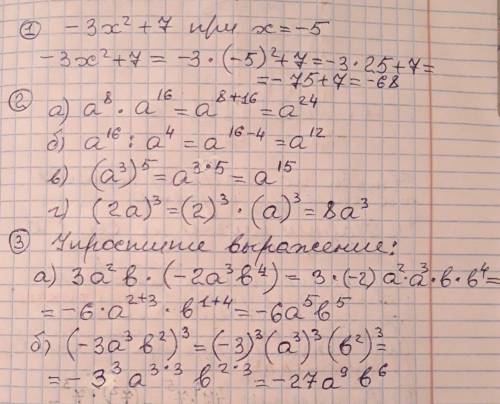 ① -3x² + 7 при x = -5
-3x² + 7 = -3 · (-5)² + 7 = -3 · 25 + 7 =
= -75 + 7 = -68
② а) a⁸ · a¹⁶ = a⁸⁺¹⁶ = a²⁴
б) a¹⁶ : a⁴ = a¹⁶⁻⁴ = a¹²
в) (a³)⁵ = a³˙⁵ = a¹⁵
г) (2a)³ = (2)³ · (a)³ = 8a³
③ Упростите выражение:
а) 3a²b · (-2a³b⁴) = 3 · (-2) a² · a³ · b · b⁴ =
= -6 · a²⁺³ · b¹⁺⁴ = -6a⁵b⁵
б) (-3a³b²)³ = (-3)³ (a³)³ (b²)³ =
= -3³ a³˙³ b²˙³ = -27a⁹b⁶